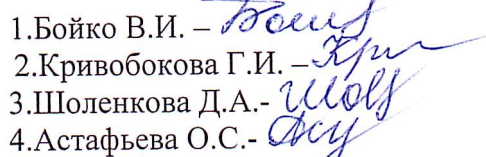 1.Бойко В.И. –
2.Кривобокова Г.И. –
3.Шоленкова Д.А.-
4.Астафьева О.С.-